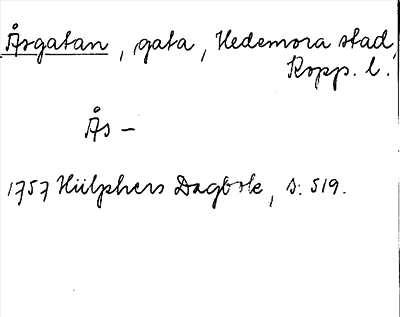 Åsgatan, gata, Hedemora stad,
Kopp. l.
Ås –
1757 Hülphers Dagbok, s. 519.